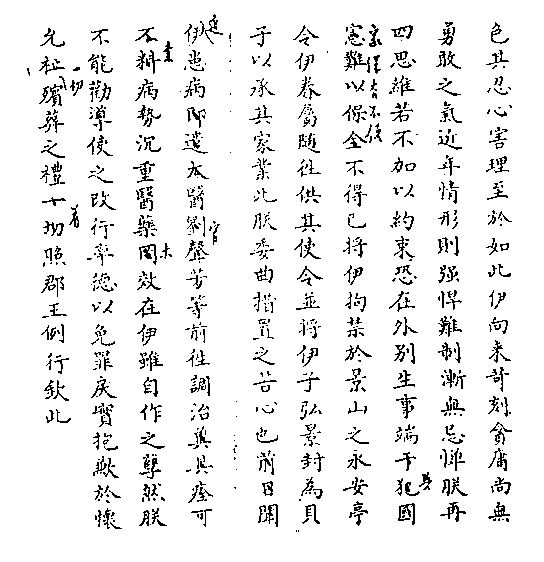 色其忍心害理至於如此伊向来苛刻貪庸尚無
勇敢之氣近年情形則强悍難制漸無忌憚朕再
四思維若不加以約束恐在外別生事端干犯國
憲難以保全不得已將伊拘禁於景山之永安亭
令伊眷屬隨往供其使令並將伊子弘景封為貝
子以承其家業此朕委曲措置之苦心也前日聞
伊患病即遣太醫劉聲芳等前往調治冀其痊可
官
不料病勢沉重醫藥罔效在伊雖自作之孽然朕
未
不能勸導使之改行率德以免罪戾實抱歉於懷
一切
着
允祉殯葬之禮一切照郡王例行欽此